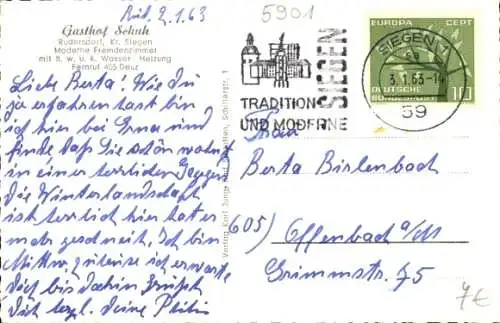 Rüd. 2.1.63
5901
Gasthof Schuh
Rudersdorf, Kr. Siegen
Moderne Fremdenzimmer
mit fl. w. u. k. Wasser Heizung
Fernruf 405 Deuz
Liebe Berta! Wie Du
ja erfahren hast bin
ich hier bei Erna und
finde daß Sie schön wohnt
in einer herrlichen Gegend
die Winterlandschaft
ist herrlich hier hat es
mehr geschneit, Ich bin
Mittw. zuhause ich erwarte
Dich bis dahin Grüßt
Dich herzl. Deine
TRADITION
UND MODERNE
SIEGEN
SIEGEN 1
3.1.63-14
59
EUROPA CEPT
DEUTSCHE
BUNDESPOST
10
Frau
Berta Birlenbach
605) Offenbach a/M
Grimmstr. 75
7€